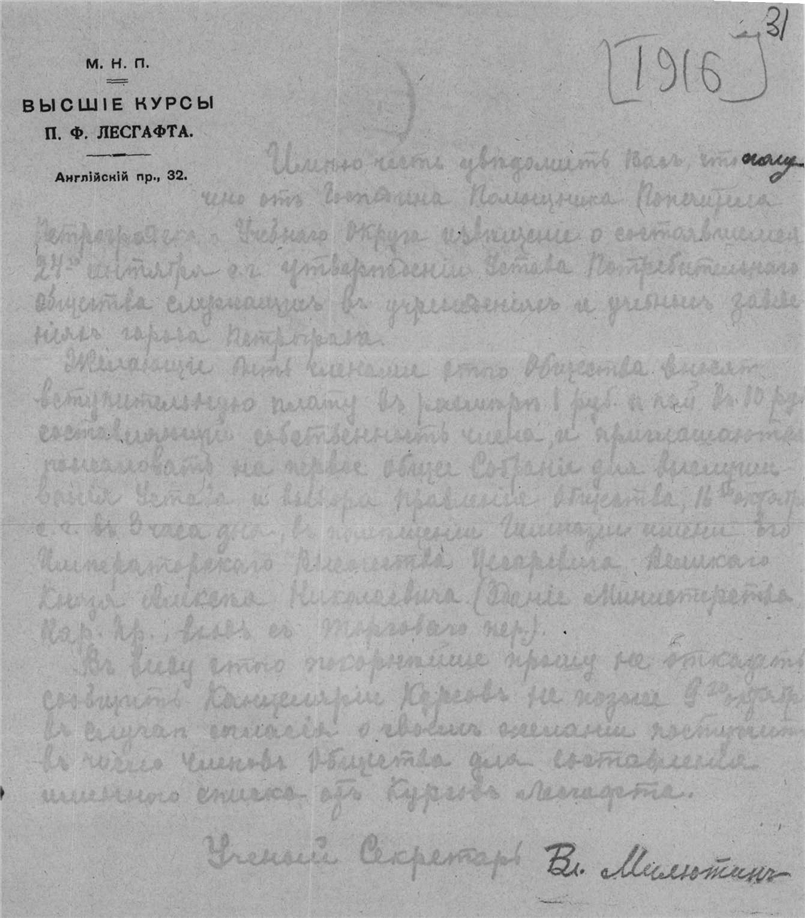 31
[1916]
М. Н. П.
ВЫСШІЕ КУРСЫ
П. Ф. ЛЕСГАФТА.
Англійскій пр., 32.
Имѣю честь увѣдомить Васъ, что полу-
чено отъ Господина Помощника Попечителя
Петроградскаго Учебнаго Округа извѣщеніе о состоявшемся
24го сентября с.г. утвержденіи Устава Потребительнаго
Общества служащихъ въ учрежденіяхъ и учебныхъ заведе-
ніяхъ города Петрограда.
Желающіе быть членами этого Общества вносятъ
вступительную плату въ размѣрѣ 1 руб. и пай въ 10 руб.
составляющій собственность члена, и приглашаются
пожаловать на первое общее Собраніе для выслуши-
ванія Устава и выбора Правленія Общества, 16го октября
с.г. въ 3 часа дня, въ помѣщеніи Гимназіи имени Его
Императорскаго Высочества Цесаревича Великаго
Князя Алексѣя Николаевича (Зданіе Министерства
Нар. Пр., входъ съ Торговаго пер.).
Въ виду этого покорнѣйше прошу не отказать
сообщить Канцеляріи Курсовъ не позже 9го октября
въ случаѣ согласія о своемъ желаніи поступить
въ число членовъ Общества для составленія
именного списка отъ Курсовъ Лесгафта.
Ученый Секретарь Вл. Милютинъ